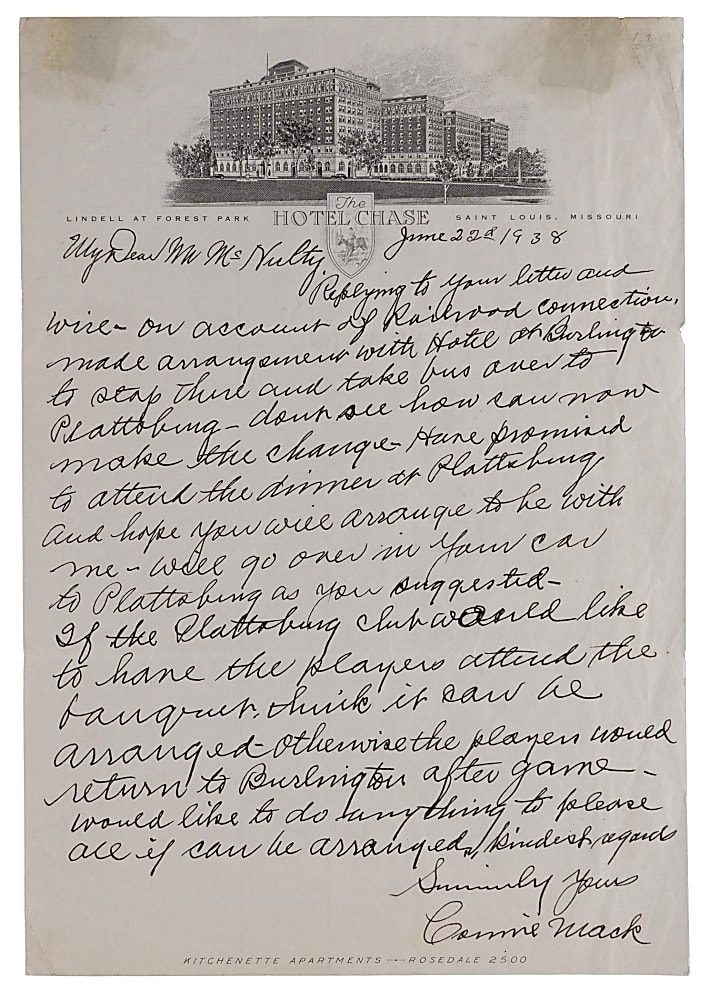 LINDELL AT FOREST PARK The HOTEL CHASE SAINT LOUIS, MISSOURI
My Dear Mr McNulty June 22d 1938
Replying to your letter and
wire - on account of Railroad connection,
made arrangement with Hotel at Burlington
to stop there and take bus over to
Plattsburg - dont see how can now
make the change - Have promised
to attend the dinner at Plattsburg
and hope you will arrange to be with
me - will go over in your car
to Plattsburg as you suggested -
If the Plattsburg club would like
to have the players attend the
banquet, think it can be
arranged - Otherwise the players would
return to Burlington after game -
would like to do anything to please
all if can be arranged, kindest regards
Sincerely Yours
Connie Mack
KITCHENETTE APARTMENTS — ROSEDALE 2500